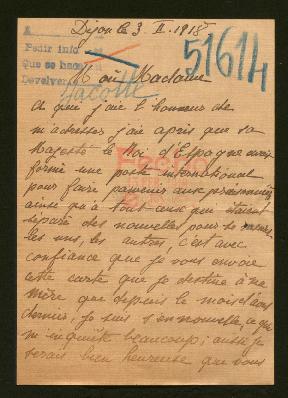 Dijon le 3. II. 1918
A
Pedir info
Que se haga
Devolver
51614
Lacotte
Madame
A qui j'aie l'honneur de
m'adresser j'aie apris que sa
Majesté le Roi d'Espagne avait
formé une poste international
pour faire parvenir aux prisonniers
ainsi qu'à tout ceux qui étaient
séparé des nouvelles pour se
les uns, les autres, c'est avec
confiance que je vous envoie
cette carte que je destine à ma
mère que depuis le mois d'aout
dernier, je suis s'en nouvelle, ce qui
m'inquiète beaucoup; aussi je
serais bien heureuse que vous